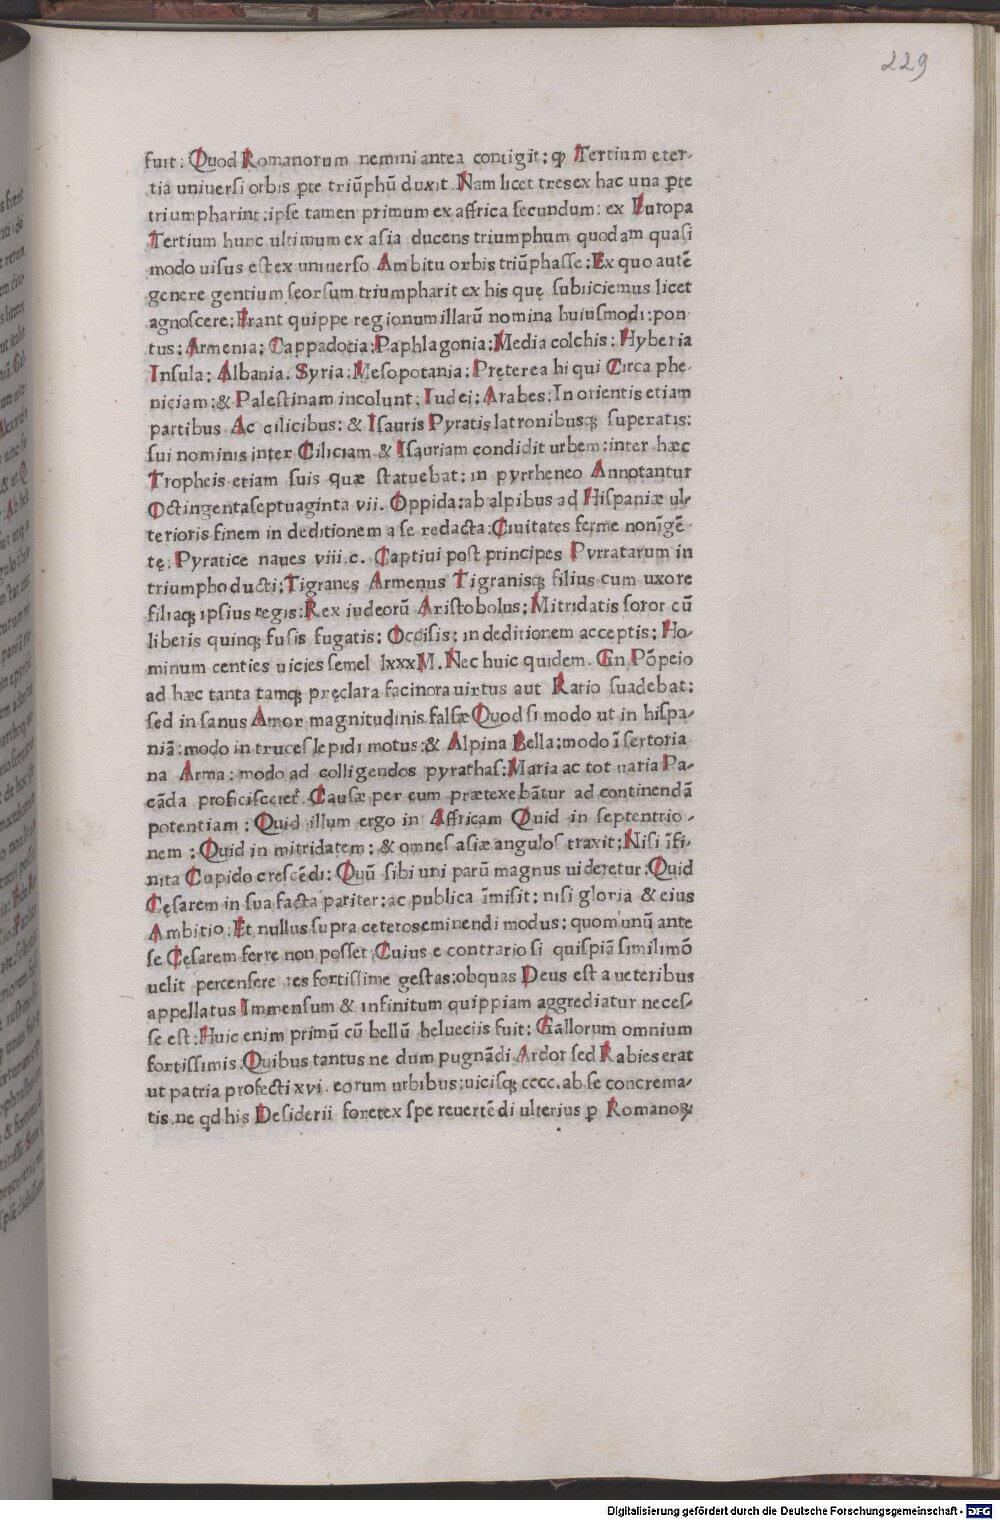 229
fuit: Quod Romanorum nemini antea contigit: ꝙ Tertium e ter-
tia uniuersi orbis ꝑte triũphũ duxit. Nam licet tres ex hac una ꝑte
triumpharint: ipse tamen primum ex affrica secundum: ex Europa
Tertium hunc ultimum ex asia ducens triumphum quodam quasi
modo uisus est ex uniuerso Ambitu orbis triũphasse: Ex quo autẽ
genere gentium seorsum triumpharit ex his quę subiiciemus licet
agnoscere: Erant quippe regionum illarũ nomina huiusmodi: pon
tus: Armenia: Cappadocia: Paphlagonia: Media colchis: Hyberia
Insula: Albania. Syria: Mesopotania: Pręterea hi qui Circa phe
niciam: & Palestinam incolunt: Iudei: Arabes: In orientis etiam
partibus Ac cilicibus: & Isauris Pyratis latronibusq; superatis:
sui nominis inter Ciliciam & Isauriam condidit urbem: inter hæc
Tropheis etiam suis quæ statuebat: in pyrrheneo Annotantur
Octingenta septuaginta vii. Oppida: ab alpibus ad Hispaniæ ul-
terioris finem in deditionem a se redacta: Ciuitates ferme nonĩgẽ
tę: Pyratice naues viii.c. Captiui post principes Pyrratarum in
triumpho ducti: Tigranes Armenus Tigranisq; filius cum uxore
filiaq; ipsius regis: Rex iudeorũ Aristobolus: Mitridatis soror cũ
liberis quinq; fusis fugatis: Occisis: in deditionem acceptis: Ho-
minum centies uicies semel lxxxM. Nec huic quidem. Gn Põpeio
ad hæc tanta tamq; pręclara facinora uirtus aut Ratio suadebat:
sed insanus Amor magnitudinis falsæ Quod si modo ut in hispa-
niã: modo in truces lepidi motus: & Alpina Bella: modo ĩ sertoria
na Arma: modo ad colligendos pyrathas: Maria ac tot uaria Pa-
cãda proficisceret̃. Causæ per eum prætexebãtur ad continendã
potentiam: Quid illum ergo in Affricam Quid in septentrio-
nem: Quid in mitridatem: & omnes asiæ angulos traxit: Nisi ĩfi-
nita Cupido crescẽdi: Quũ sibi uni parũ magnus uideretur: Quid
Cęsarem in sua facta pariter: ac publica ĩmisit: nisi gloria & eius
Ambitio: Et nullus supra ceteros eminendi modus: quom unũ ante
se Cęsarem ferre non posset: Cuius e contrario si quispiã similimõ
uelit percensere res fortissime gestas: ob quas Deus est a ueteribus
appellatus Immensum & infinitum quippiam aggrediatur neces-
se est: Huic enim primũ cũ bellũ helueciis fuit: Gallorum omnium
fortissimis. Quibus tantus ne dum pugnãdi Ardor sed Rabies erat
ut patria profecti xvi. eorum urbibus: uicisq; cccc. ab se concrema-
tis. ne qd his Desiderii foret ex spe reuertẽdi ulterius ꝑ Romanoꝝ
Digitalisierung gefördert durch die Deutsche Forschungsgemeinschaft - DFG